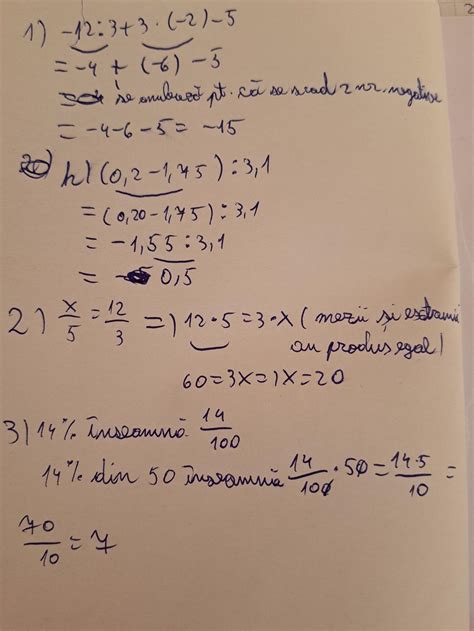 1) -12:3+3·(-2)-5
= -4 + (-6) - 5
se pt. că se scad 2 nr. negative
= -4-6-5 = -15
h) (0,2-1,75):3,1
= (0,20-1,75):3,1
= -1,55:3,1
= - 0,5
2) x/5 = 12/3 =) 12·5=3·x (mezii și extremii
au produs egal)
60=3x=)x=20
3) 14% înseamnă 14/100
14% din 50 înseamnă 14/100·50=14·5/10=
70/10=7
2